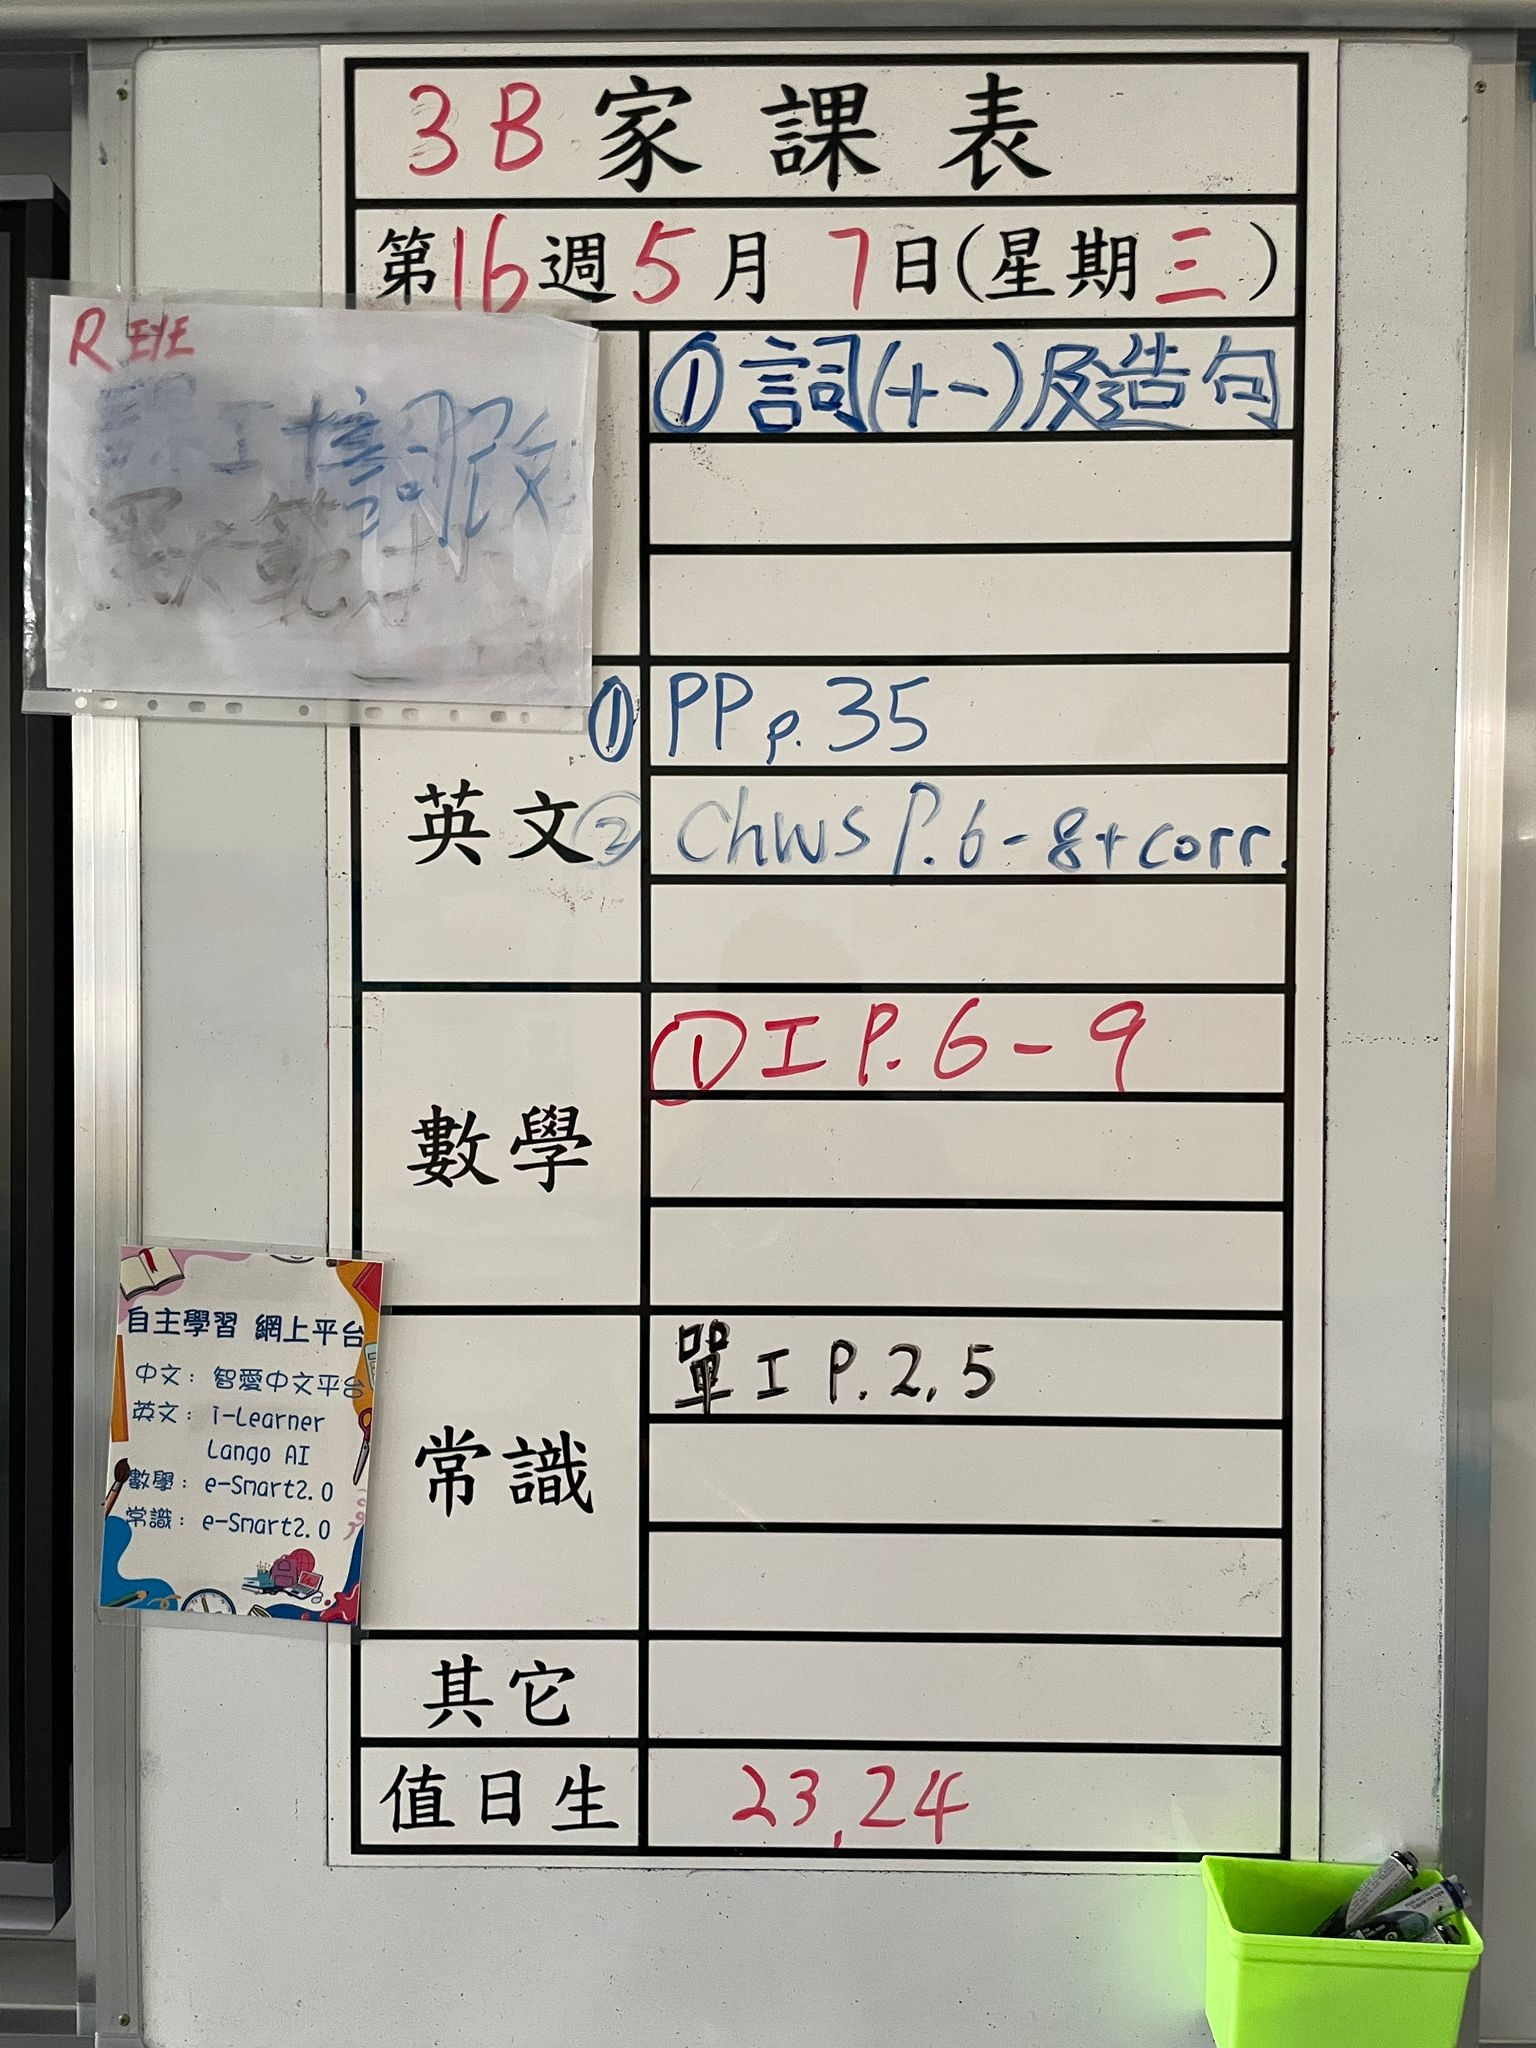 3B 家課表
第16週5月7日(星期三)
R班
①詞(十一)及造句
英文
① PP p.35
② Chws P.6-8+corr.
數學
① 工 P.6-9
常識
單工 P.2,5
其它
值日生
23,24
自主學習 網上平台
中文: 智愛中文平台
英文: i-Learner
Lango AI
數學: e-Smart2.0
常識: e-Smart2.0